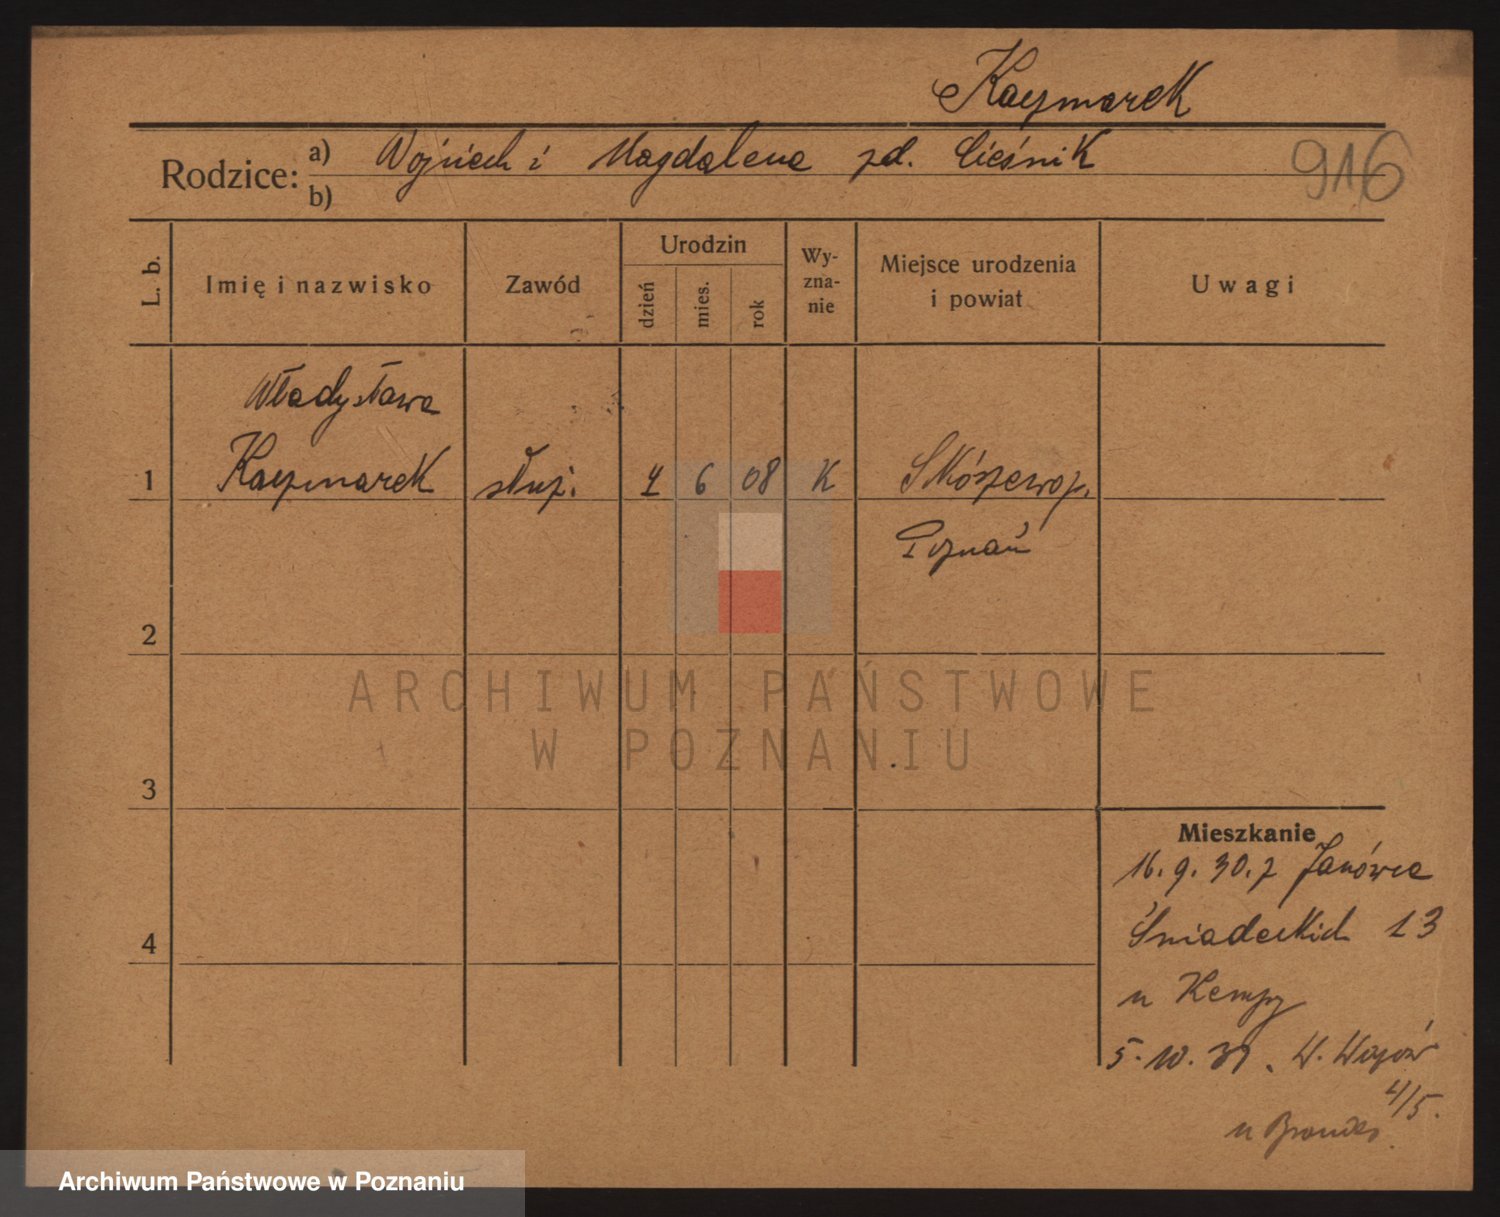 Kaczmarek
Rodzice: a) Wojciech i Magdalena zd. Cieśnik
b)
916
L. b.
Imię i nazwisko
Zawód
Urodzin
dzień
mies.
rok
Wy-
zna-
nie
Miejsce urodzenia
i powiat
Uwagi
Władysława
1 Kaczmarek służ. 6 08 K
Poznań
2
ARCHIWUM PAŃSTWOWE
W POZNANIU
3
Mieszkanie
16. 9. 30. z Janówca
4
Śniadeckich 13
u Kempy
5. 10. 31. W.
4/5.
u
Archiwum Państwowe w Poznaniu